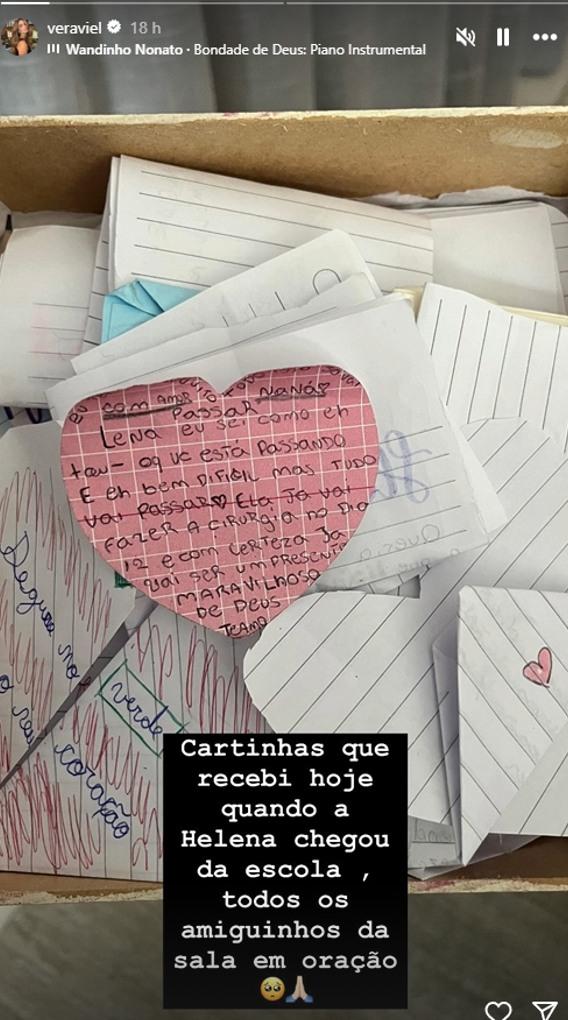 veraviel 18 h
Wandinho Nonato · Bondade de Deus: Piano Instrumental
com amor Naná
Passar
Lena eu sei como eh
tau- oq vc está Passando
E eh bem DIFICIL mas TUDO
vai Passar♡ Ela Já vai
FAZER A CIRURGIA NO DIA
12 E com CERTEZA Ja
vai SER UM PRESENTE
MARAVILHOSO
DE DEUS
TEAMO
verde
coração
Cartinhas que
recebi hoje
quando a
Helena chegou
da escola ,
todos os
amiguinhos da
sala em oração
🥺🙏🏻